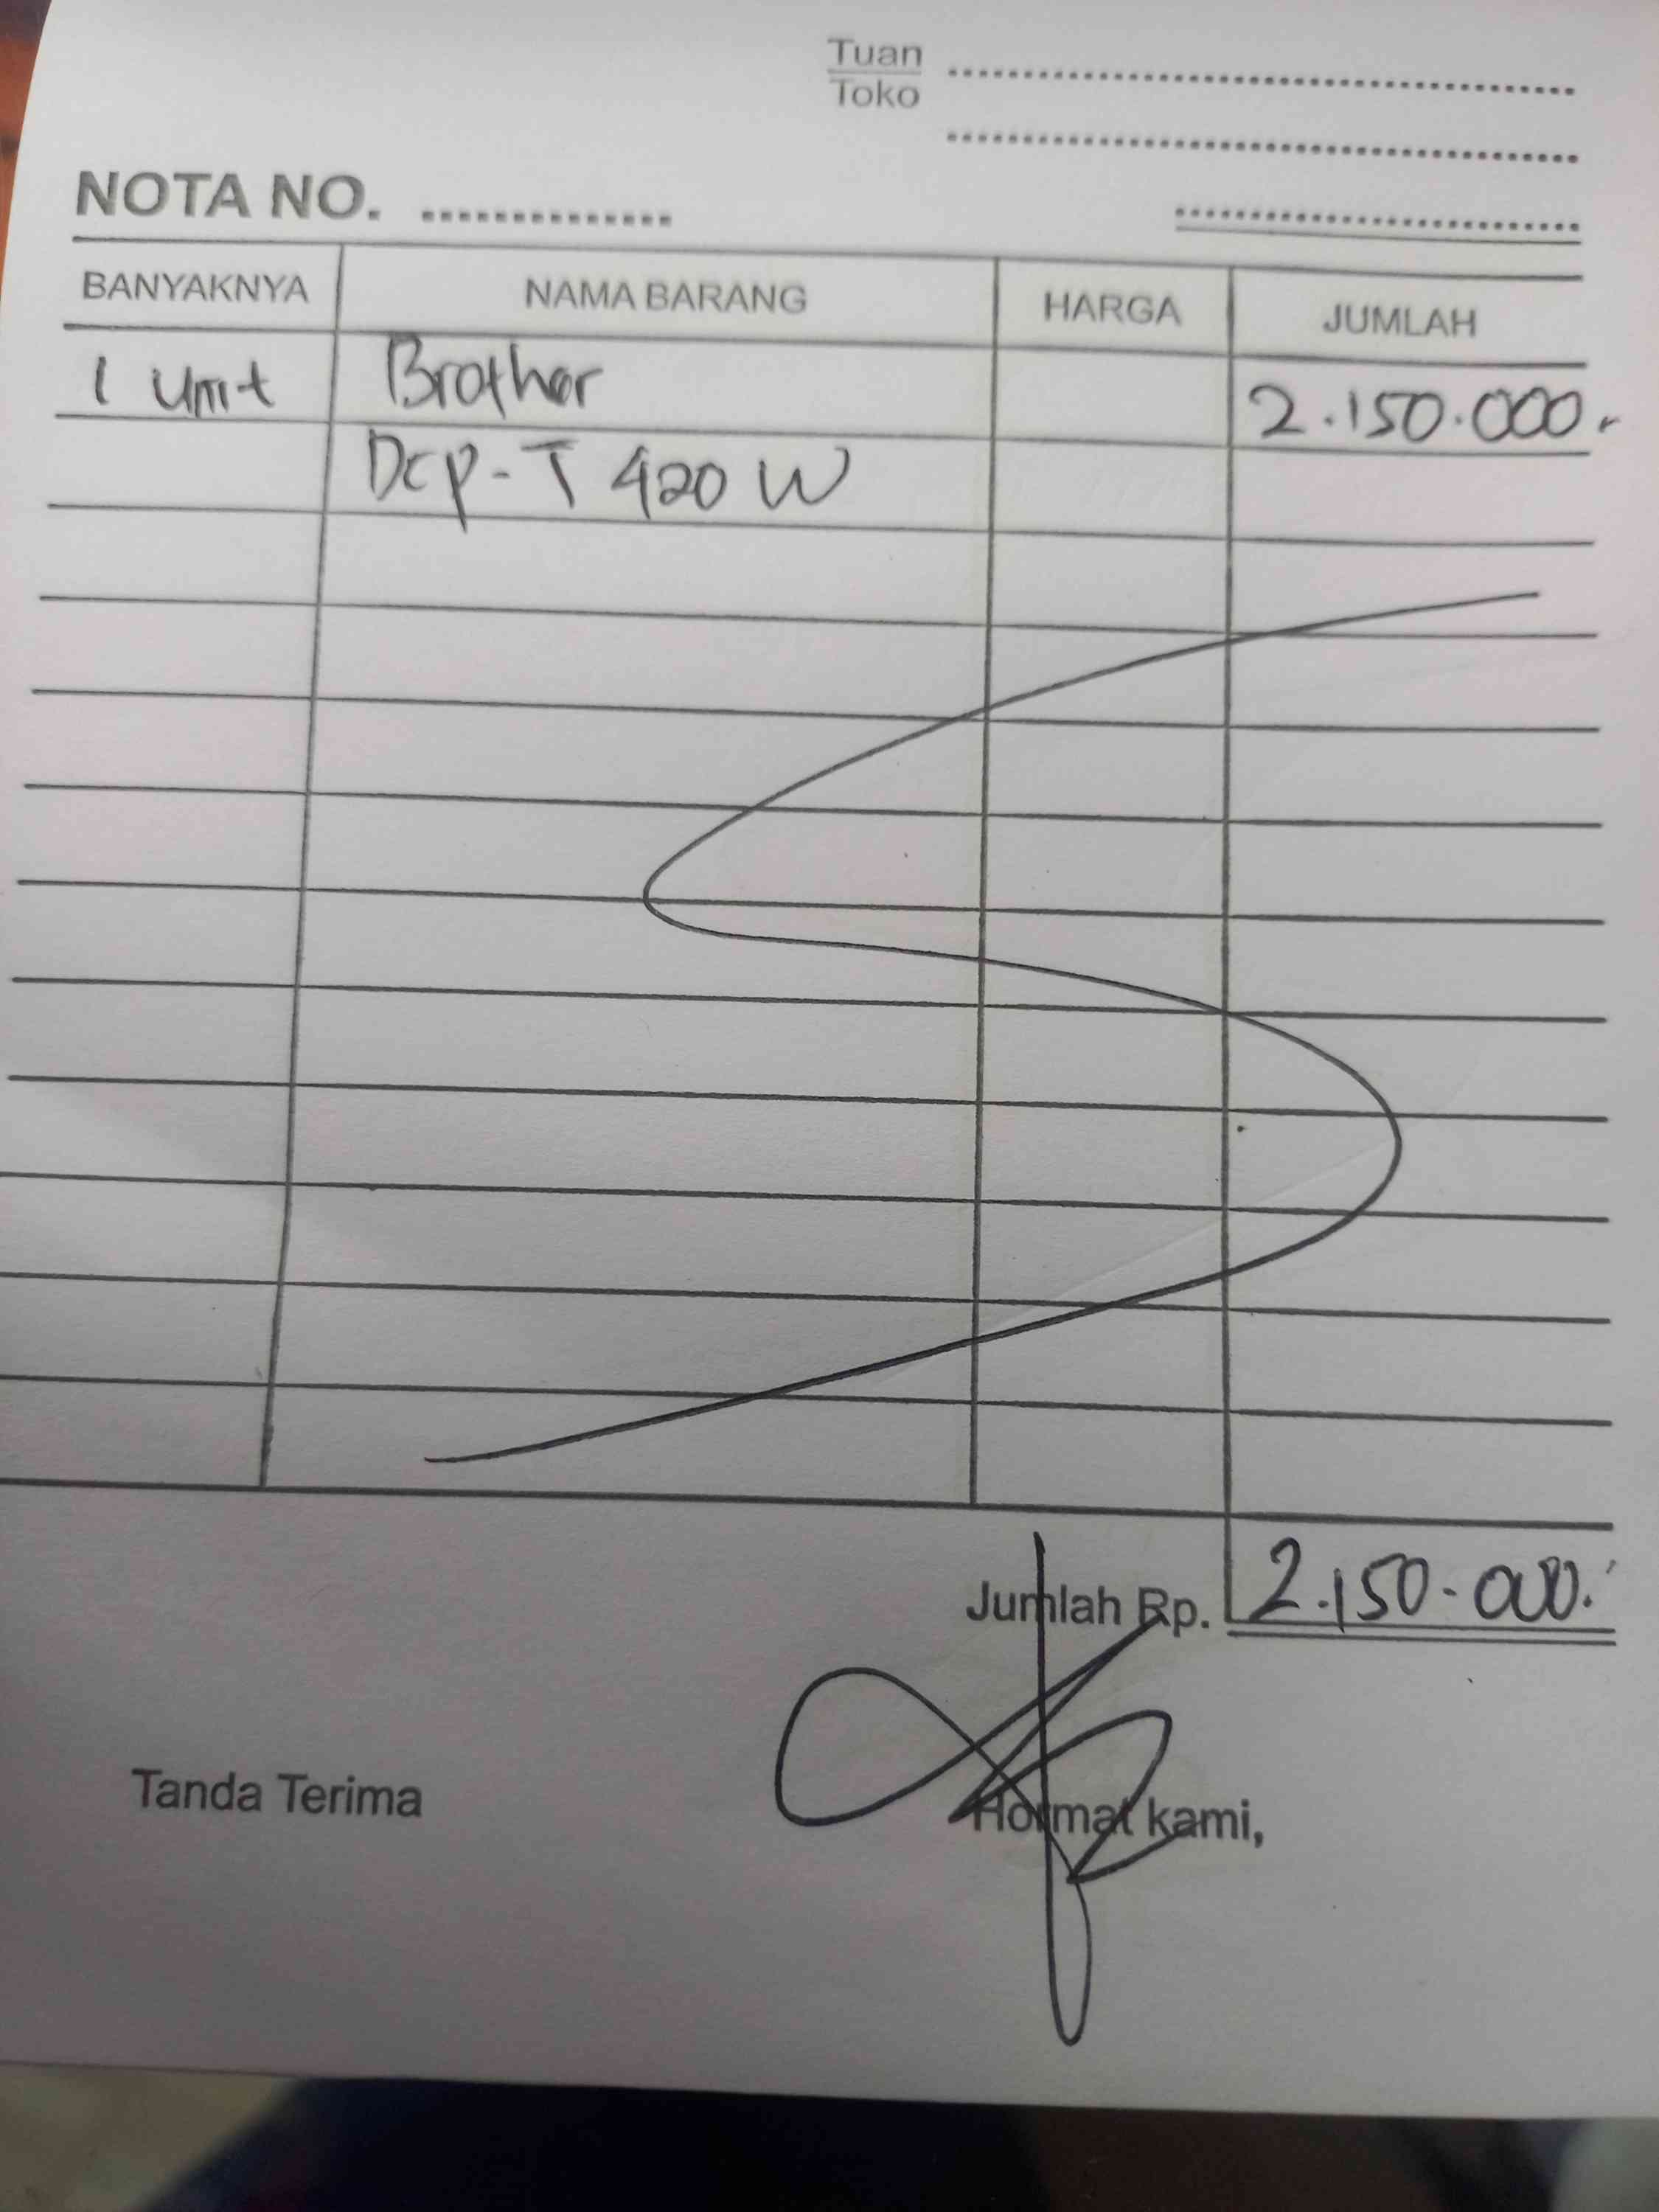 Tuan
Toko
NOTA NO.
BANYAKNYA NAMA BARANG HARGA JUMLAH
1 Unit Brother 2.150.000.-
Dcp-T 420 W
Jumlah Rp. 2.150.000.-
Tanda Terima Hormat kami,